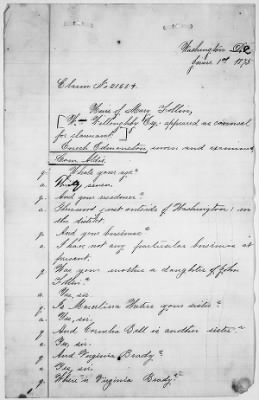 Washington D.C.
June 1st 1875
Claim No 21684
Heirs of Mary Follin,
[Wm Willoughby Esq, appeared as counsel
for claimant]
Enoch Edmonston, sworn and examined
Dom Allis.
q. Whats your age?
a. seven.
q. And your residence?
a. Sherwood (just outside of Washington) in
the district.
q. And your business?
a. I have not any particular business at
present.
q. Was your mother a daughter of John
Follin?
a. Yes, sir.
q. Is Marcelina Waters your sister?
a. Yes, sir.
q. And Cornelia Bell is another sister?
a. Yes, sir.
q. And Virginia Beady?
a. Yes, sir.
q. Where is Virginia Beady?